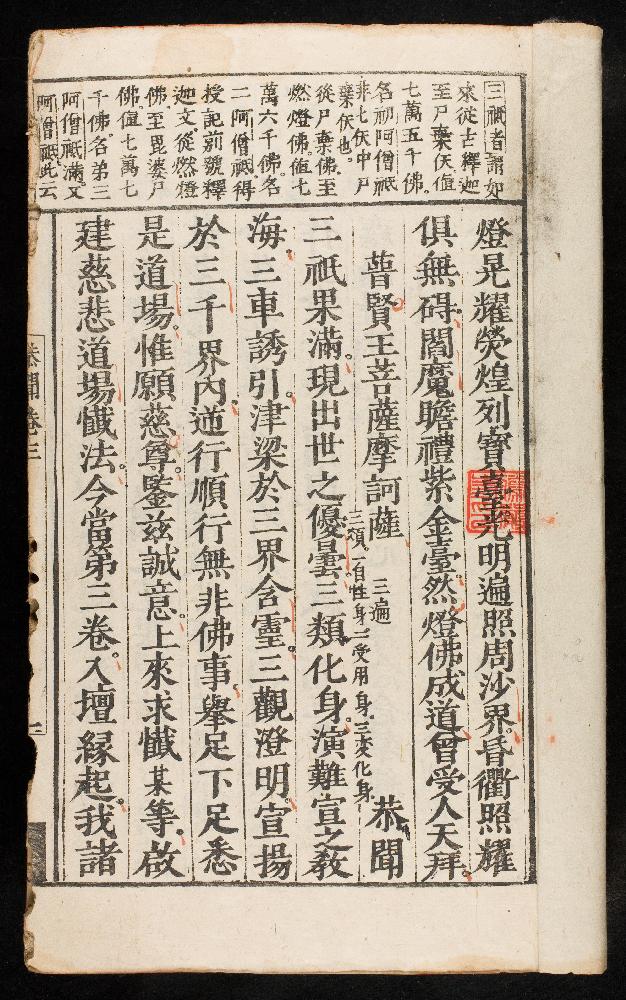 三祇者謂如
來從古釋迦
至尸棄佛値
七萬五千佛
名初阿僧祇
非七佛中尸
棄佛也
從尸棄佛至
燃燈佛値七
萬六千佛名
二阿僧祇得
授記前號釋
迦文從燃燈
佛至毘婆尸
佛値七萬七
千佛名弟三
阿僧祇滿又
阿僧祇此云
燈晃耀熒煌列寶臺光明遍照周沙界昏衢照耀
俱無碍閻魔瞻禮紫金臺然燈佛成道曾受人天拜
普賢王菩薩摩訶薩 三遍 恭聞
三類一自性身二受用身三変化身
三祇果滿現出世之優曇三類化身演難宣之教
海三車誘引津梁於三界含靈三觀澄明宣揚
於三千界內逆行順行無非佛事舉足下足悉
是道場惟願慈尊鑒兹誠意上來求懺某等啟
建慈悲道場懺法今當第三卷入壇緣起我諸
恭聞卷三